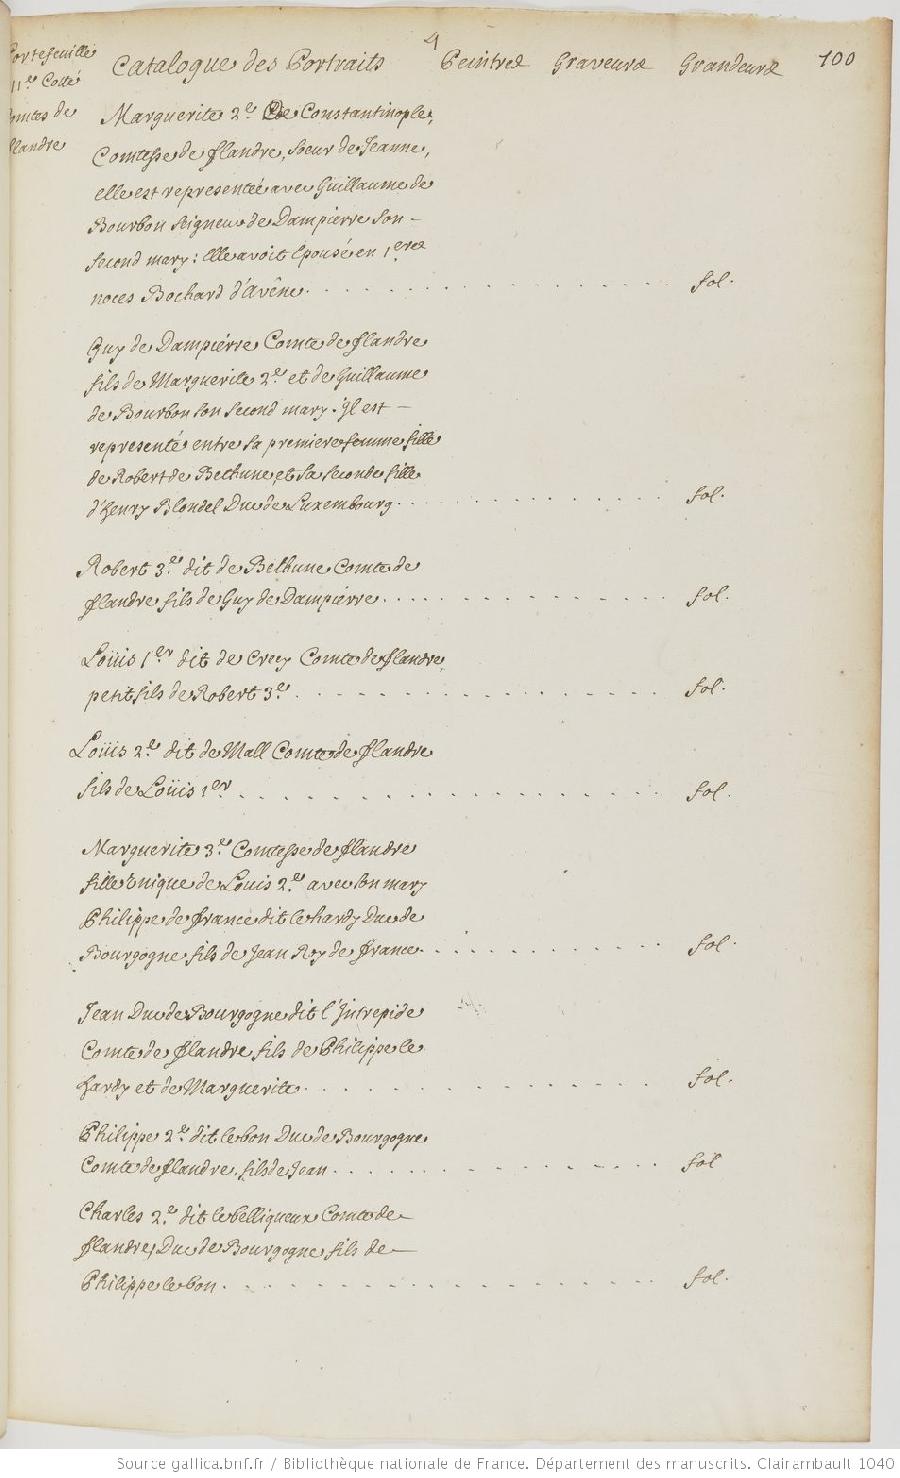 4
Portefeuille
11es Cotté
Comtes de
flandre
Catalogue des Portraits Peintres Graveurs Grandeurs 100
Marguerite 2e. De Constantinople,
Comtesse de flandre, soeur de Jeanne,
elle est representée avec Guillaume de
Bourbon seigneur de Dampierre son
second mary: elle avoit épousé en 1eres
noces Bochard d'avêne. fol.
Guy de Dampiérre Comte de flandre
fils de Marguerite 2e. et de Guillaume
de Bourbon son second mary. il est
representé entre sa premiere femme fille
de Robert de Bethune et sa seconde fille
d'henry Blondel Duc de Luxembourg. fol.
Robert 3e. dit de Bethune Comte de
flandre fils de Guy de Dampiérre. fol.
Loüis 1er dit de Crecy Comte de flandre
petit fils de Robert 3e. fol.
Loüis 2e. dit de Mall Comte de flandre
fils de Loüis 1er. fol.
Marguerite 3e. Comtesse de flandre
fille unique de Louis 2e. avec son mary
Philippe de france dit le hardy Duc de
Bourgogne fils de Jean Roy de france. fol.
Jean Duc de Bourgogne dit l'Intrepide
Comte de flandre, fils de Philippe le
hardy et de Marguerite. fol.
Philippe 2e. dit le bon Duc de Bourgogne
Comte de flandre. fils de Jean. fol
Charles 2e. dit le belliqueux Comte de
flandre, Duc de Bourgogne fils de
Philippe le bon. fol.
Source gallica.bnf.fr / Bibliothèque nationale de France. Département des manuscrits. Clairambault 1040